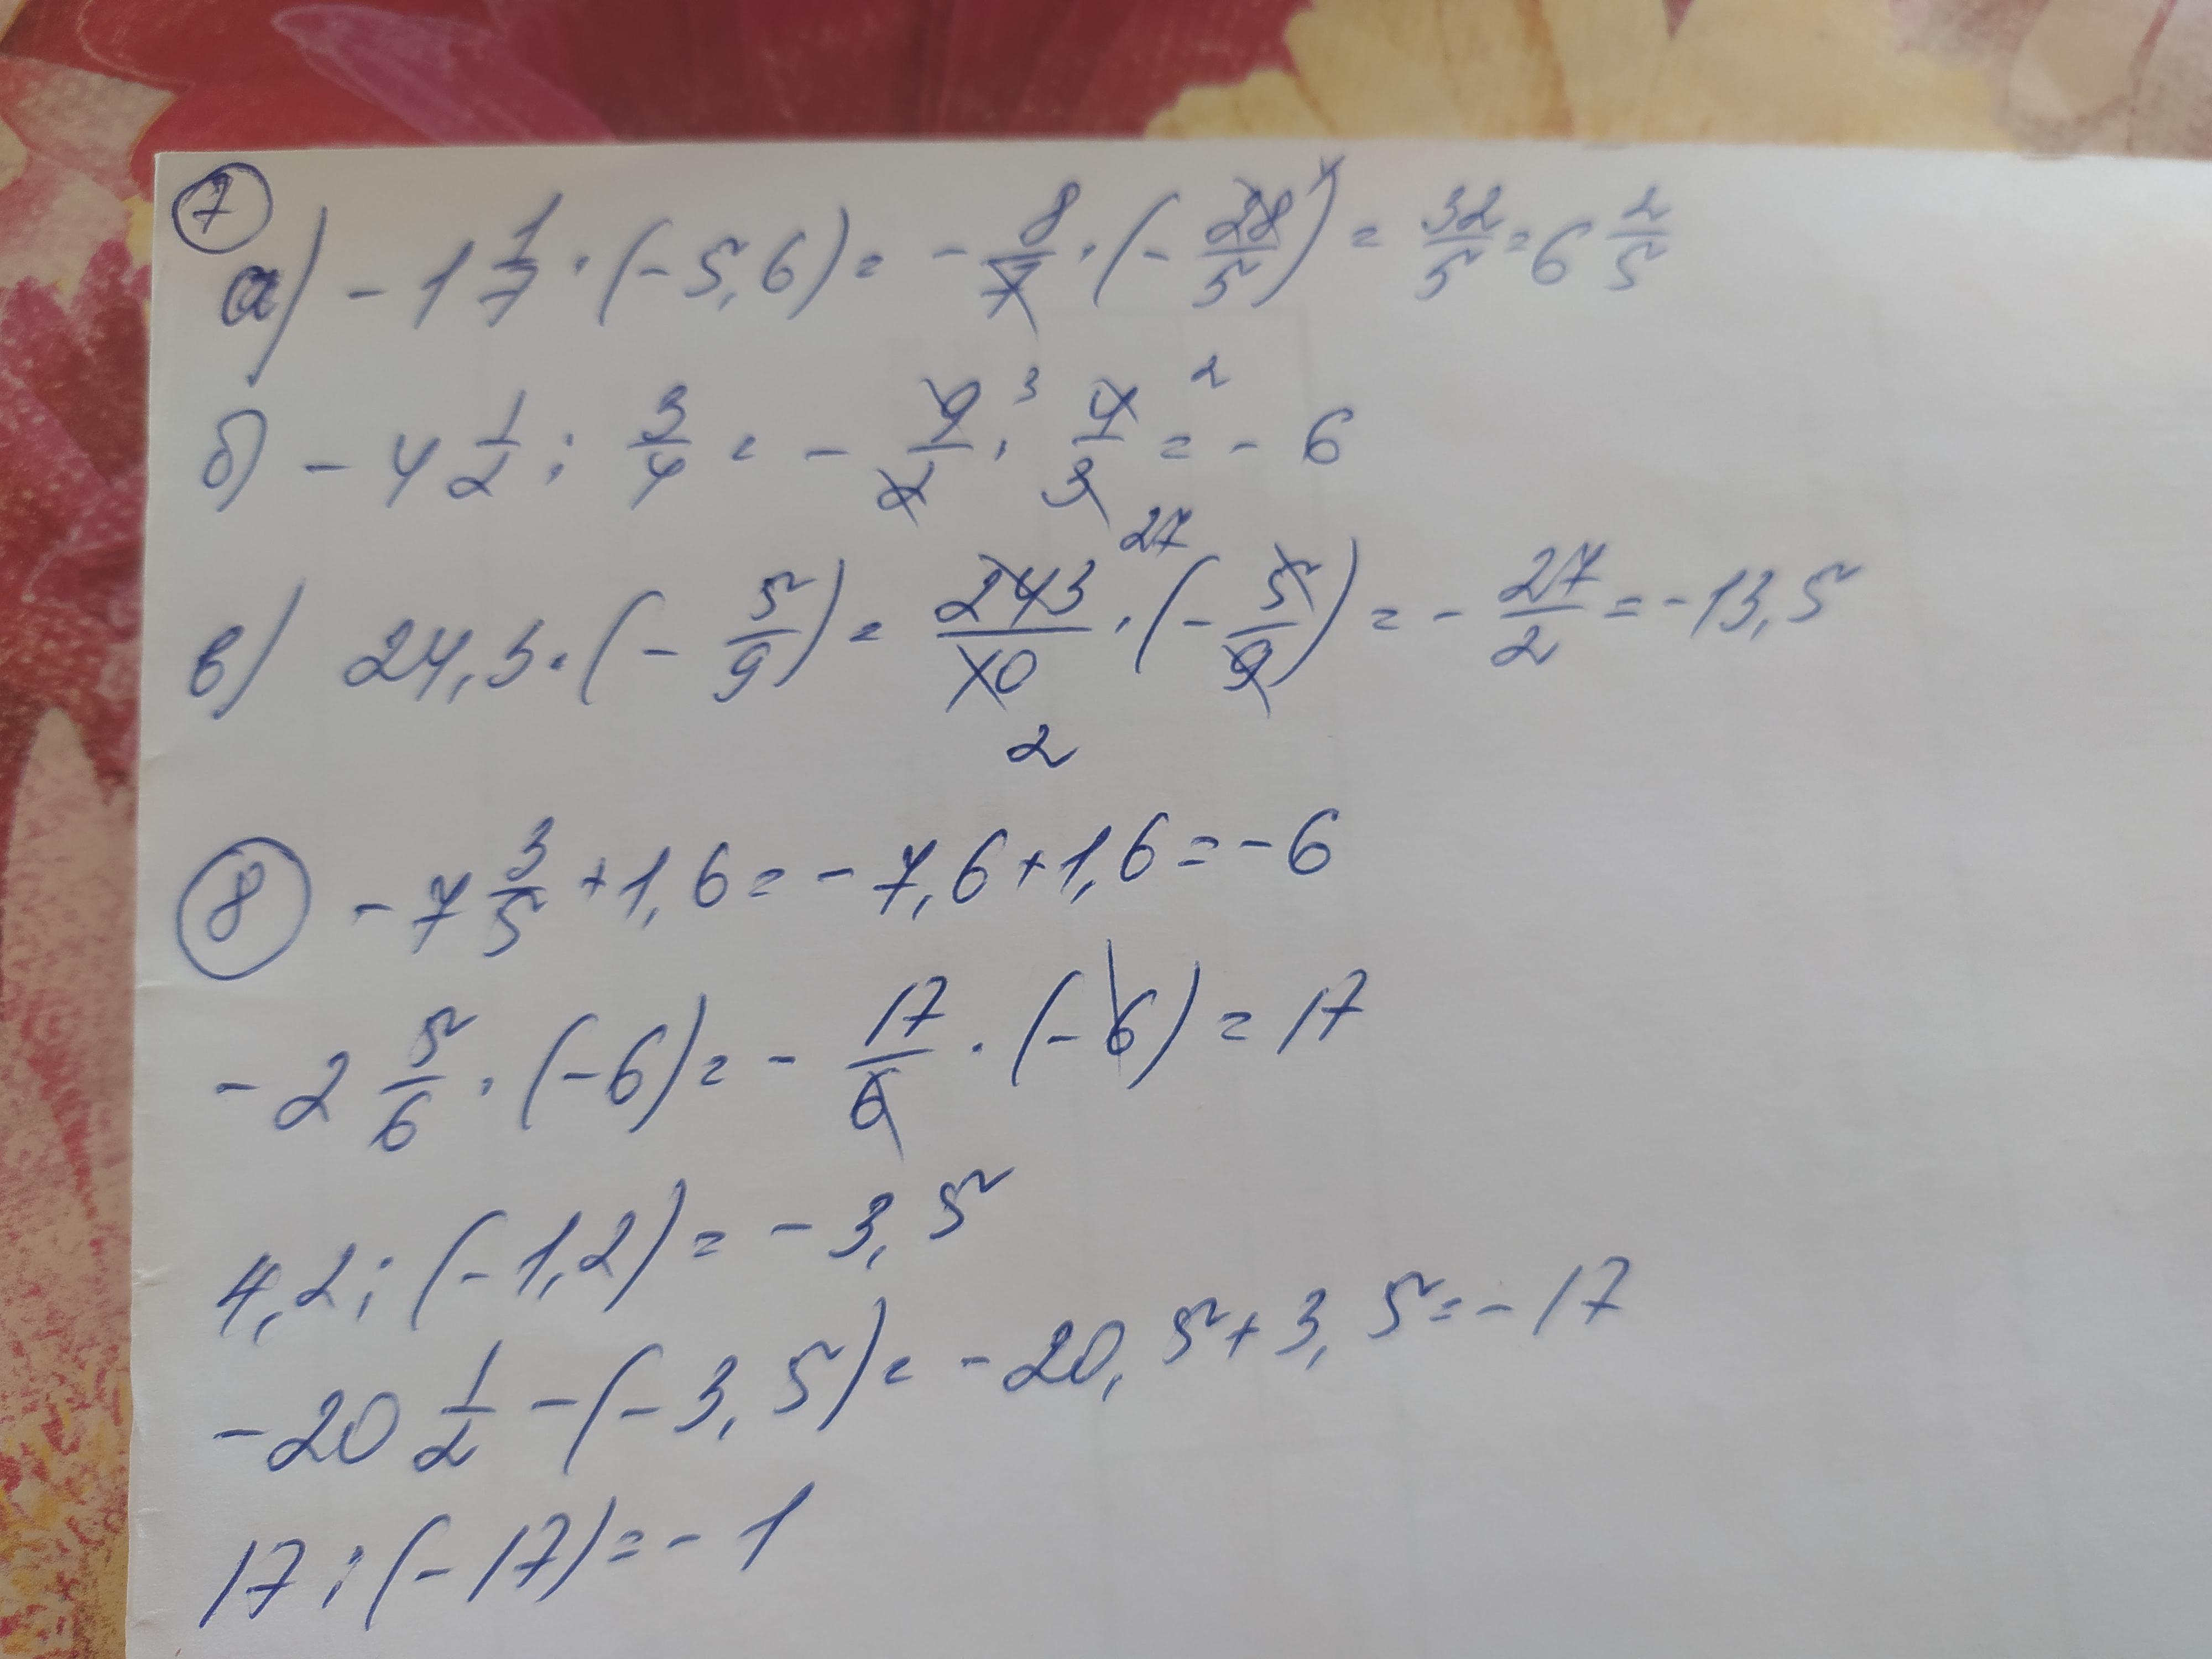 7
а) - 1 1/7 · (- 5,6) = - 8/7 · (- 28/5) 4 = 32/5 = 6 2/5
б) - 4 1/2 : 3/4 = - 9/2 3 · 4/3 2 = - 6
в) 24,3 · (- 5/9) = 243/10 27 · (- 5/9) = - 27/2 = - 13,5
2
8 - 7 3/5 + 1,6 = - 7,6 + 1,6 = - 6
- 2 5/6 · (- 6) = - 17/6 · (- 6) = 17
4,2 : (- 1,2) = - 3,5
- 20 1/2 - (- 3,5) = - 20,5 + 3,5 = - 17
17 : (- 17) = - 1